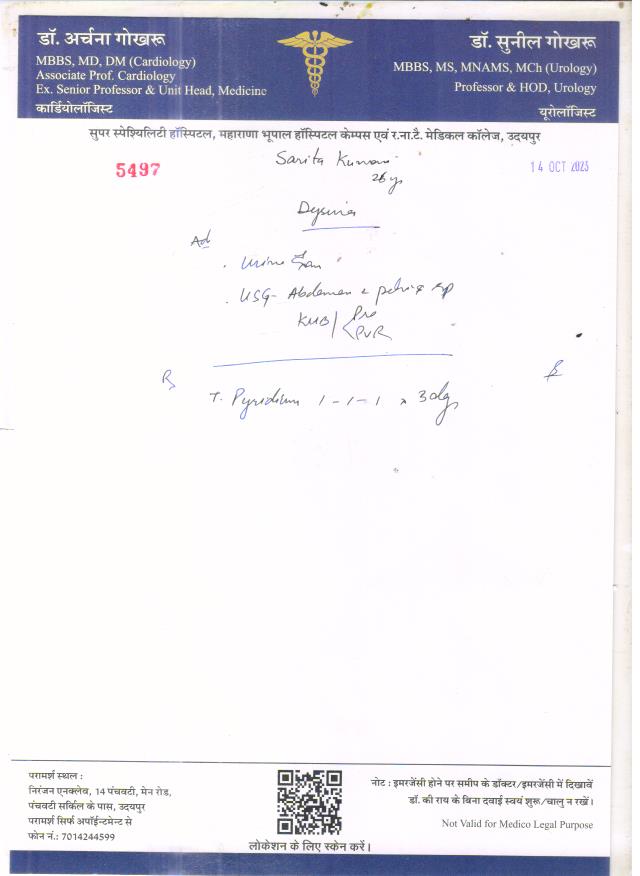 डॉ. अर्चना गोखरू
MBBS, MD, DM (Cardiology)
Associate Prof. Cardiology
Ex. Senior Professor & Unit Head, Medicine
कार्डियोलॉजिस्ट
डॉ. सुनील गोखरू
MBBS, MS, MNAMS, MCh (Urology)
Professor & HOD, Urology
यूरोलॉजिस्ट
सुपर स्पेश्यिलिटी हॉस्पिटल, महाराणा भूपाल हॉस्पिटल केम्पस एवं र.ना.टै. मेडिकल कॉलेज, उदयपुर
5497
Sarita Kumari
14 OCT 2025
26 y
Dysuria
Ad
. Urine
. USG- Abdomen & pelvis
KUB / Pre
PVR
R
T. Pyridium 1-1-1 x 3 dys
परामर्श स्थल :
निरंजन एनक्लेव, 14 पंचवटी, मेन रोड,
पंचवटी सर्किल के पास, उदयपुर
परामर्श सिर्फ अपॉईन्टमेन्ट से
फोन नं.: 7014244599
लोकेशन के लिए स्केन करें।
नोट : इमरजेंसी होने पर समीप के डॉक्टर/इमरजेंसी में दिखावें
डॉ. की राय के बिना दवाई स्वयं शुरू/चालु न रखें।
Not Valid for Medico Legal Purpose